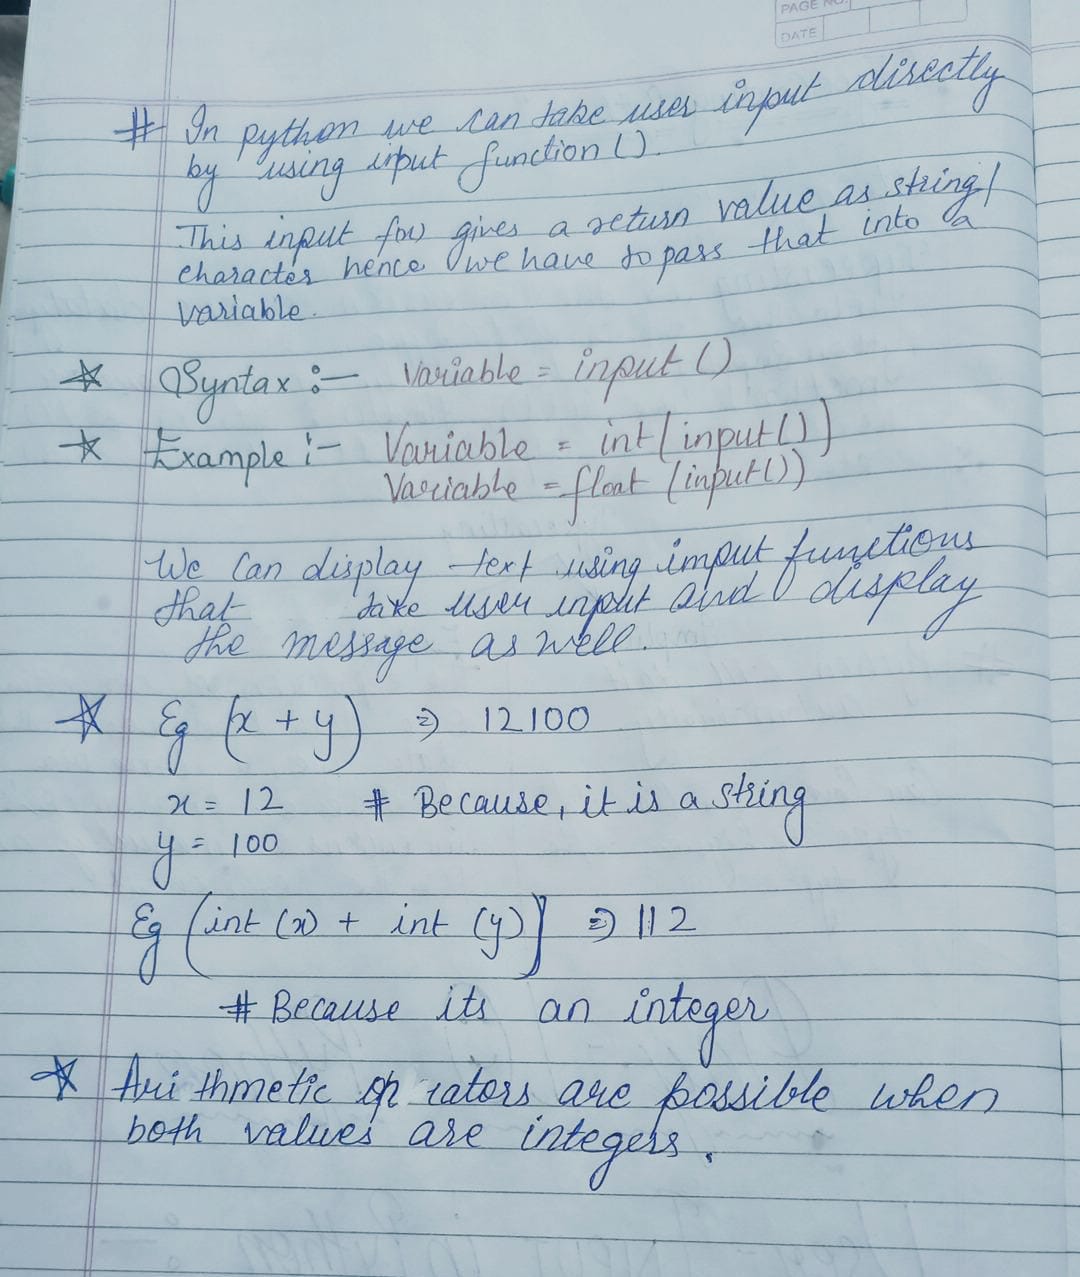 PAGE NO.
DATE
# In python we can take user input directly
by using input function ().
This input fow gives a return value as string/
character hence we have to pass that into a
variable.
☆ Syntax :- Variable = input ()
☆ Example :- Variable = int(input())
Variable = float (input())
We Can display text using imput functions
that take user input and display
the message as well.
☆ Eg (x + y) ⇒ 12100
x = 12 # Because, it is a string
y = 100
Eg (int (x) + int (y)) ⇒ 112
# Because its an integer
☆ Arithmetic oprators are possible when
both values are integers.